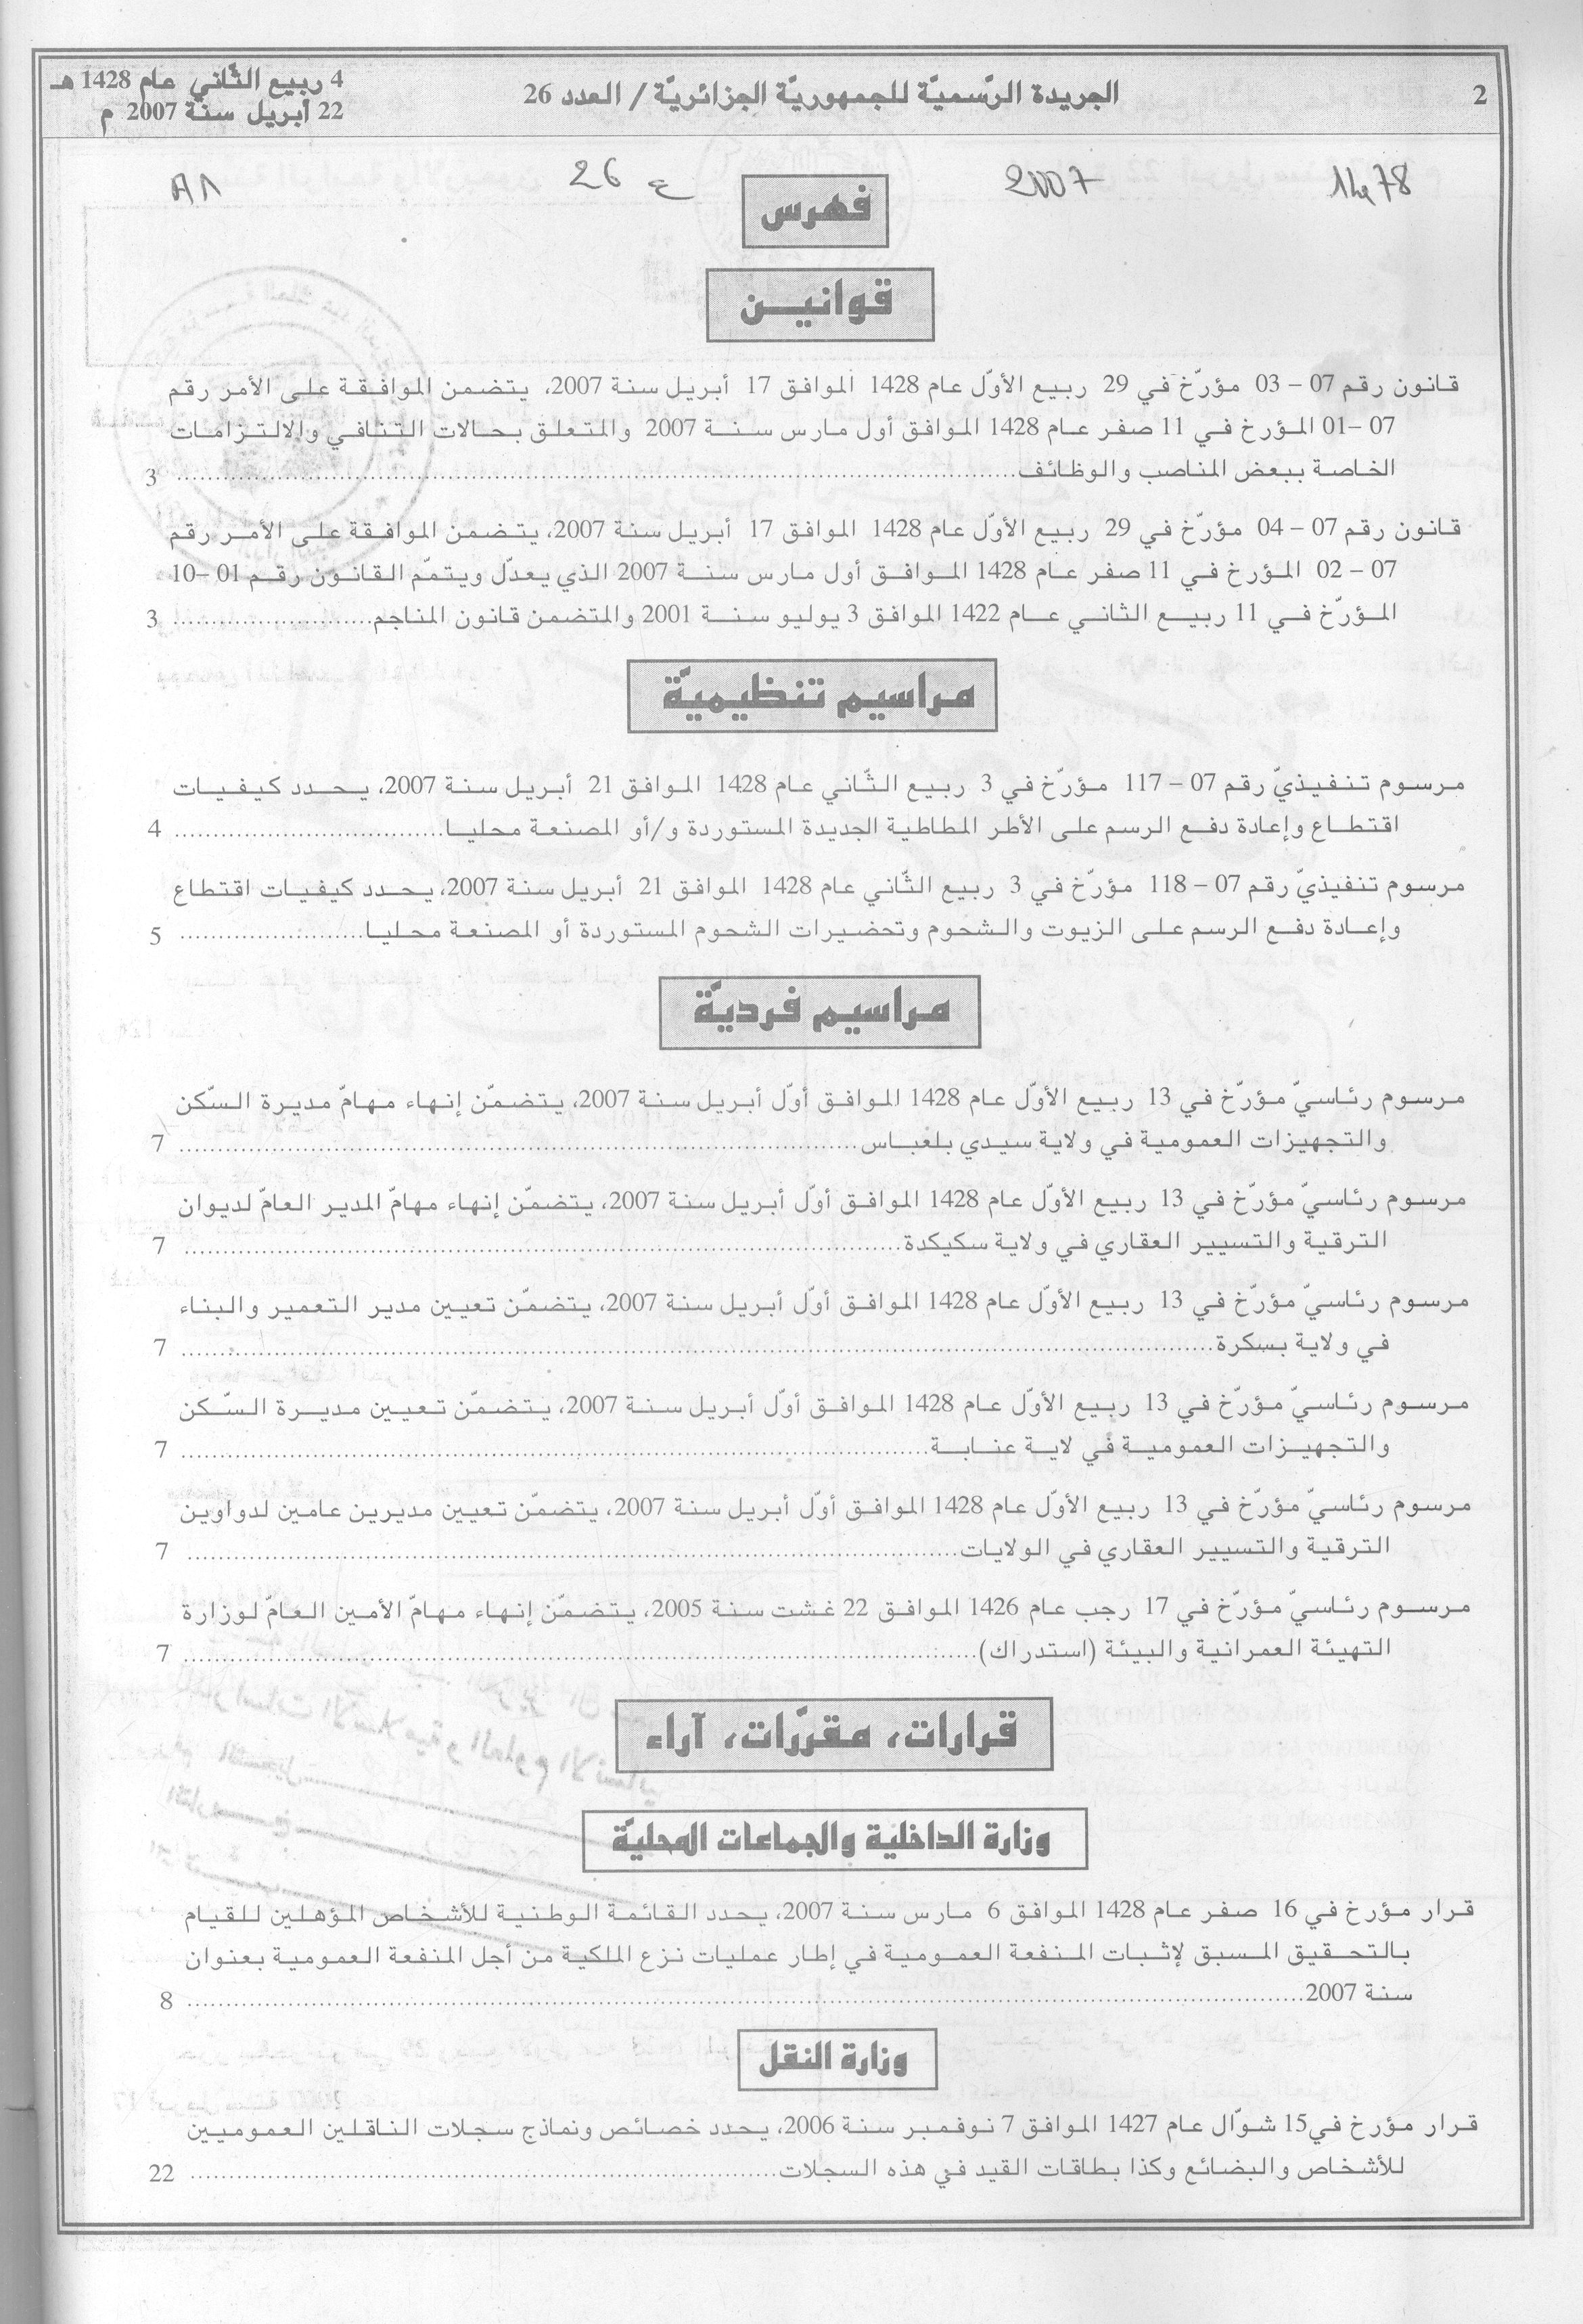 2
الجريدة الرّسميّة للجمهوريّة الجزائريّة / العدد 26
4 ربيع الثّاني عام 1428 هـ
22 أبريل سنة 2007 م
1478 2007 ع 26
فهرس
قوانيـن
قـانـون رقـم 07 – 03 مؤرّخ في 29 ربيع الأوّل عام 1428 الموافق 17 أبريل سنة 2007، يتضمن الموافقة على الأمر رقم
07 –01 المؤرخ في 11 صفر عام 1428 الموافق أول مارس سنة 2007 والمتعلق بحالات التنافي والالتزامات
الخاصة ببعض المناصب والوظائف........................ 3
قـانـون رقـم 07 – 04 مؤرّخ في 29 ربيع الأوّل عام 1428 الموافق 17 أبريل سنة 2007، يتضمن الموافقة على الأمر رقم
07 – 02 المؤرخ في 11 صفر عام 1428 الموافق أول مارس سنة 2007 الذي يعدّل ويتمّم القانون رقم 01 –10
المؤرّخ في 11 ربيع الثاني عام 1422 الموافق 3 يوليو سنة 2001 والمتضمن قانون المناجم........................ 3
مراسيم تنظيميّة
مرسوم تنفيذيّ رقم 07 – 117 مؤرّخ في 3 ربيع الثّاني عام 1428 الموافق 21 أبريل سنة 2007، يحدد كيفيات
اقتطاع وإعادة دفع الرسم على الأطر المطاطية الجديدة المستوردة و/أو المصنعة محليا........................ 4
مرسوم تنفيذيّ رقم 07 – 118 مؤرّخ في 3 ربيع الثّاني عام 1428 الموافق 21 أبريل سنة 2007، يحدد كيفيات اقتطاع
وإعادة دفع الرسم على الزيوت والشحوم وتحضيرات الشحوم المستوردة أو المصنعة محليا........................ 5
مراسيم فرديّة
مرسوم رئاسيّ مؤرّخ في 13 ربيع الأوّل عام 1428 الموافق أوّل أبريل سنة 2007، يتضمّن إنهاء مهامّ مديرة السّكن
والتجهيزات العمومية في ولاية سيدي بلعباس........................ 7
مرسوم رئاسيّ مؤرّخ في 13 ربيع الأوّل عام 1428 الموافق أوّل أبريل سنة 2007، يتضمّن إنهاء مهامّ المدير العامّ لديوان
الترقية والتسيير العقاري في ولاية سكيكدة........................ 7
مرسوم رئاسيّ مؤرّخ في 13 ربيع الأوّل عام 1428 الموافق أوّل أبريل سنة 2007، يتضمّن تعيين مدير التعمير والبناء
في ولاية بسكرة........................ 7
مرسوم رئاسيّ مؤرّخ في 13 ربيع الأوّل عام 1428 الموافق أوّل أبريل سنة 2007، يتضمّن تعيين مديرة السّكن
والتجهيزات العمومية في لاية عنابة........................ 7
مرسوم رئاسيّ مؤرّخ في 13 ربيع الأوّل عام 1428 الموافق أوّل أبريل سنة 2007، يتضمّن تعيين مديرين عامين لدواوين
الترقية والتسيير العقاري في الولايات........................ 7
مرسوم رئاسيّ مؤرّخ في 17 رجب عام 1426 الموافق 22 غشت سنة 2005، يتضمّن إنهاء مهامّ الأمين العامّ لوزارة
التهيئة العمرانية والبيئة (استدراك)........................ 7
قرارات، مقرّرات، آراء
وزارة الداخلية والجماعات المحليّة
قرار مؤرخ في 16 صفر عام 1428 الموافق 6 مارس سنة 2007، يحدد القائمة الوطنية للأشخاص المؤهلين للقيام
بالتحقيق المسبق لإثبات المنفعة العمومية في إطار عمليات نزع الملكية من أجل المنفعة العمومية بعنوان
سنة 2007........................ 8
وزارة النقل
قرار مؤرخ في15 شوّال عام 1427 الموافق 7 نوفمبر سنة 2006، يحدد خصائص ونماذج سجلات الناقلين العموميين
للأشخاص والبضائع وكذا بطاقات القيد في هذه السجلات........................ 22